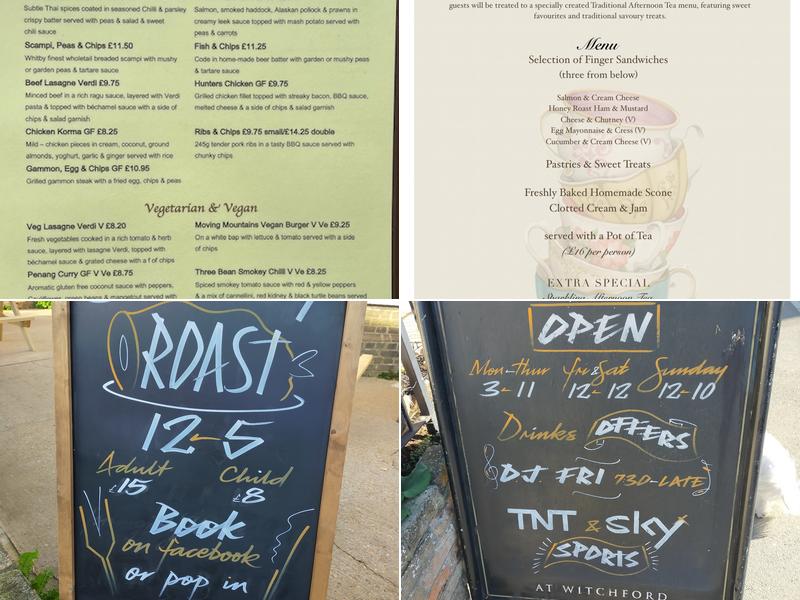 Subtle Thai spices coated in seasoned Chilli & parsley
crispy batter served with peas & salad & sweet
chilli sauce
Scampi, Peas & Chips £11.50
Whitby finest wholetail breaded scampi with mushy
or garden peas & tartare sauce
Beef Lasagne Verdi £9.75
Minced beef in a rich ragu sauce, layered with Verdi
pasta & topped with béchamel sauce with a side of
chips & salad garnish
Chicken Korma GF £8.25
Mild – chicken pieces in cream, coconut, ground
almonds, yoghurt, garlic & ginger served with rice
Gammon, Egg & Chips GF £10.95
Grilled gammon steak with a fried egg, chips & peas
Salmon, smoked haddock, Alaskan pollock & prawns in
creamy leek sauce topped with mash potato served with
peas & carrots
Fish & Chips £11.25
Code in home-made beer batter with garden or mushy peas
& tartare sauce
Hunters Chicken GF £9.75
Grilled chicken fillet topped with streaky bacon, BBQ sauce,
melted cheese & a side of chips & salad garnish
Ribs & Chips £9.75 small/£14.25 double
245g tender pork ribs in a tasty BBQ sauce served with
chunky chips
Vegetarian & Vegan
Veg Lasagne Verdi V £8.20
Fresh vegetables cooked in a rich tomato & herb
sauce, layered with lasagne Verdi, topped with
béchamel sauce & grated cheese with a f of chips
Penang Curry GF V Ve £8.75
Aromatic gluten free coconut sauce with peppers,
Cauliflower, green beans & mangetout served with
Moving Mountains Vegan Burger V Ve £9.25
On a white bap with lettuce & tomato served with a side
of chips
Three Bean Smokey Chilli V Ve £8.25
Spiced smokey tomato sauce with red & yellow peppers
& a mix of cannellini, red kidney & black turtle beans served
guests will be treated to a specially created Traditional Afternoon Tea menu, featuring sweet
favourites and traditional savoury treats.
Menu
Selection of Finger Sandwiches
(three from below)
Salmon & Cream Cheese
Honey Roast Ham & Mustard
Cheese & Chutney (V)
Egg Mayonnaise & Cress (V)
Cucumber & Cream Cheese (V)
Pastries & Sweet Treats
Freshly Baked Homemade Scone
Clotted Cream & Jam
served with a Pot of Tea
(£16 per person)
EXTRA SPECIAL
Sparkling Afternoon Tea
ROAST
12-5
Adult Child
£15 £8
Book
on facebook
or pop in
OPEN
Mon-Thur Fri & Sat Sunday
3-11 12-12 12-10
Drinks OFFERS
DJ FRI 730-LATE
TNT & Sky
SPORTS
AT WITCHFORD